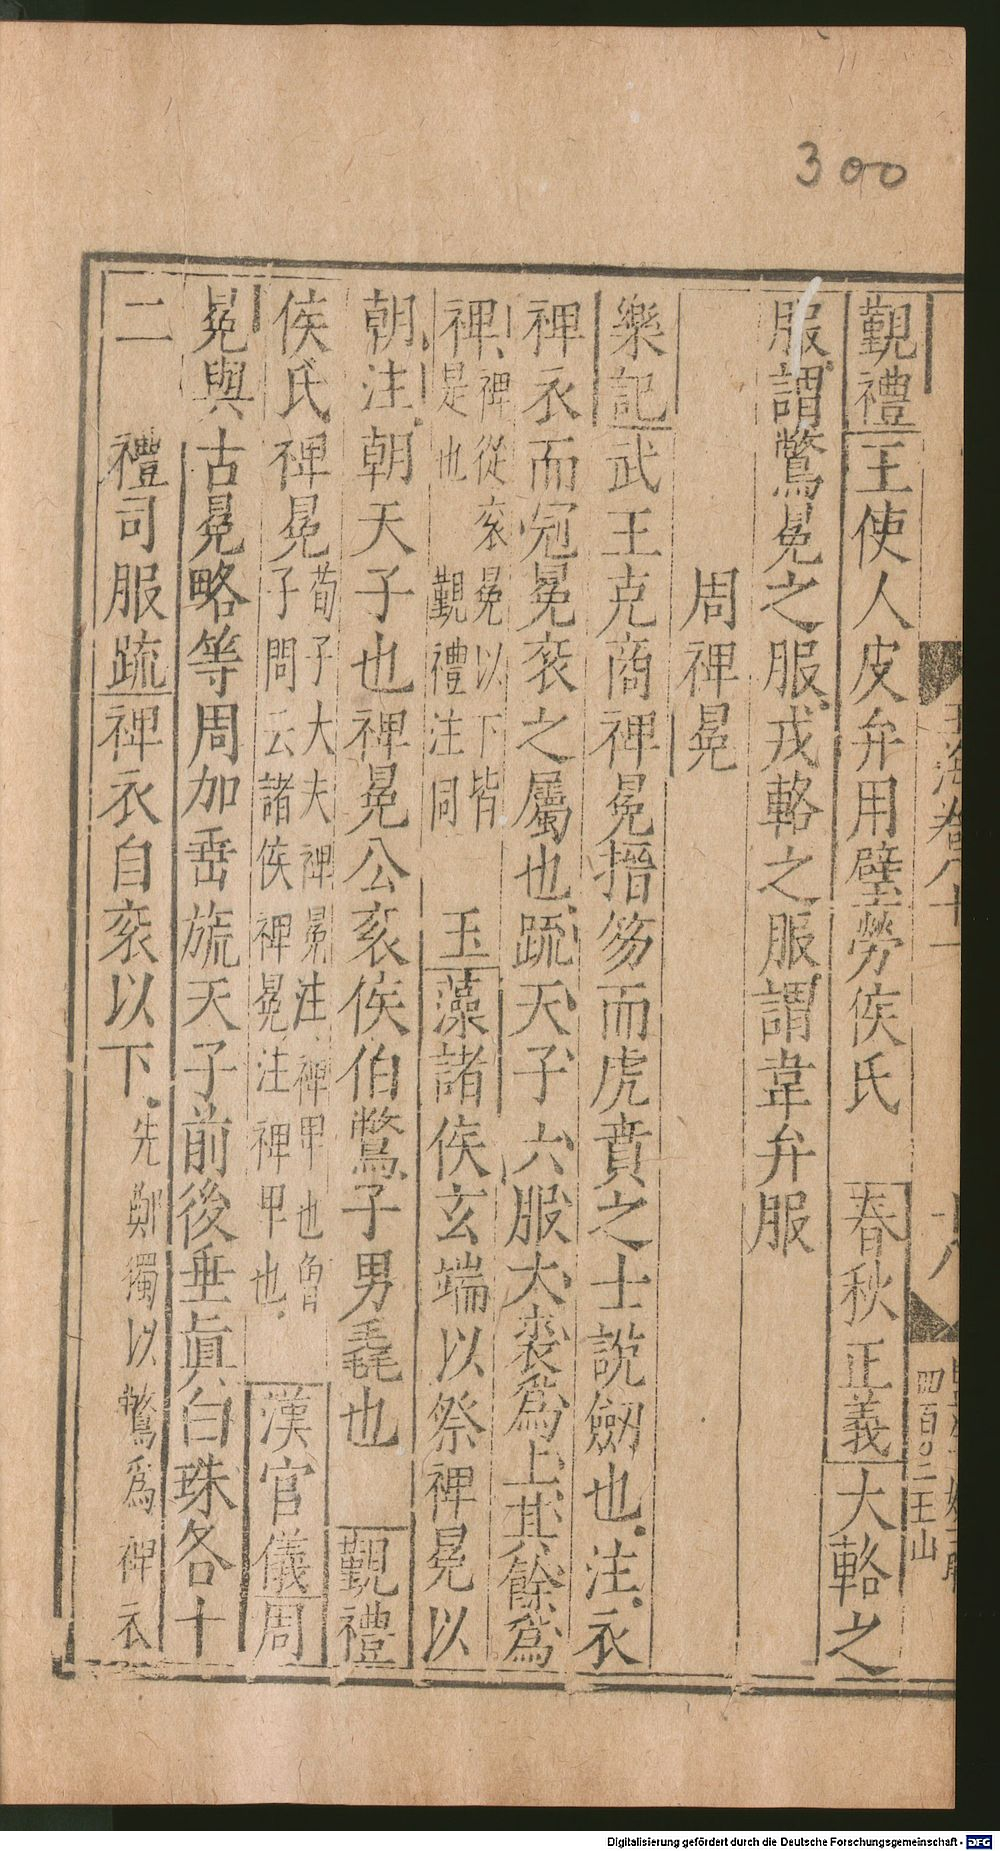 300
玉海卷八十一
十八
四百〇二 王山
覲禮王使人皮弁用璧勞侯氏 春秋正義大輅之
服謂鷩冕之服戎輅之服謂韋弁服
周裨冕
樂記武王克商裨冕搢笏而虎賁之士說劔也注衣
裨衣而冠冕衮之屬也䟽天子六服大裘爲上其餘爲
裨裨從衮冕以下皆是也覲禮注同 玉藻諸侯玄端以祭裨冕以
朝注朝天子也裨冕公衮侯伯鷩子男毳也 覲禮
侯氏裨冕荀子大夫裨冕注裨甲也曾子問云諸侯裨冕注裨甲也 漢官儀周
冕與古冕略等周加垂旒天子前後垂眞白珠各十
二 禮司服䟽裨衣自衮以下先鄭獨以鷩爲裨衣
Digitalisierung gefördert durch die Deutsche Forschungsgemeinschaft - DFG